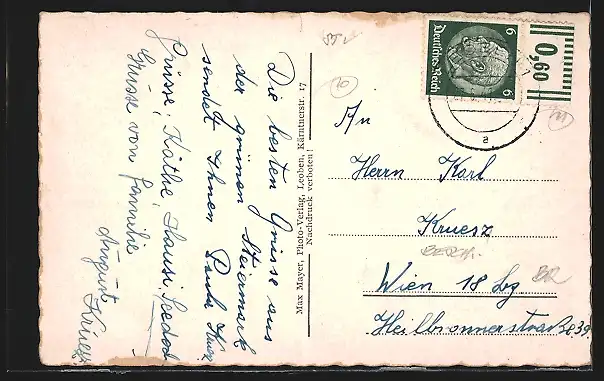 Die besten Grüsse aus
der grünen Steiermark
sendet Ihnen Paula
Grüsse, Käthe, Hansi,
Grüsse von Familie
August Krues
Max Mayer, Photo-Verlag, Leoben, Kärntnerstr. 17
Nachdruck verboten!
6 6
Deutsches Reich
0,60
a
10
11
An
Herrn Karl
Kruesz
Wien 18 Bez
Heilbronnerstraße 39.